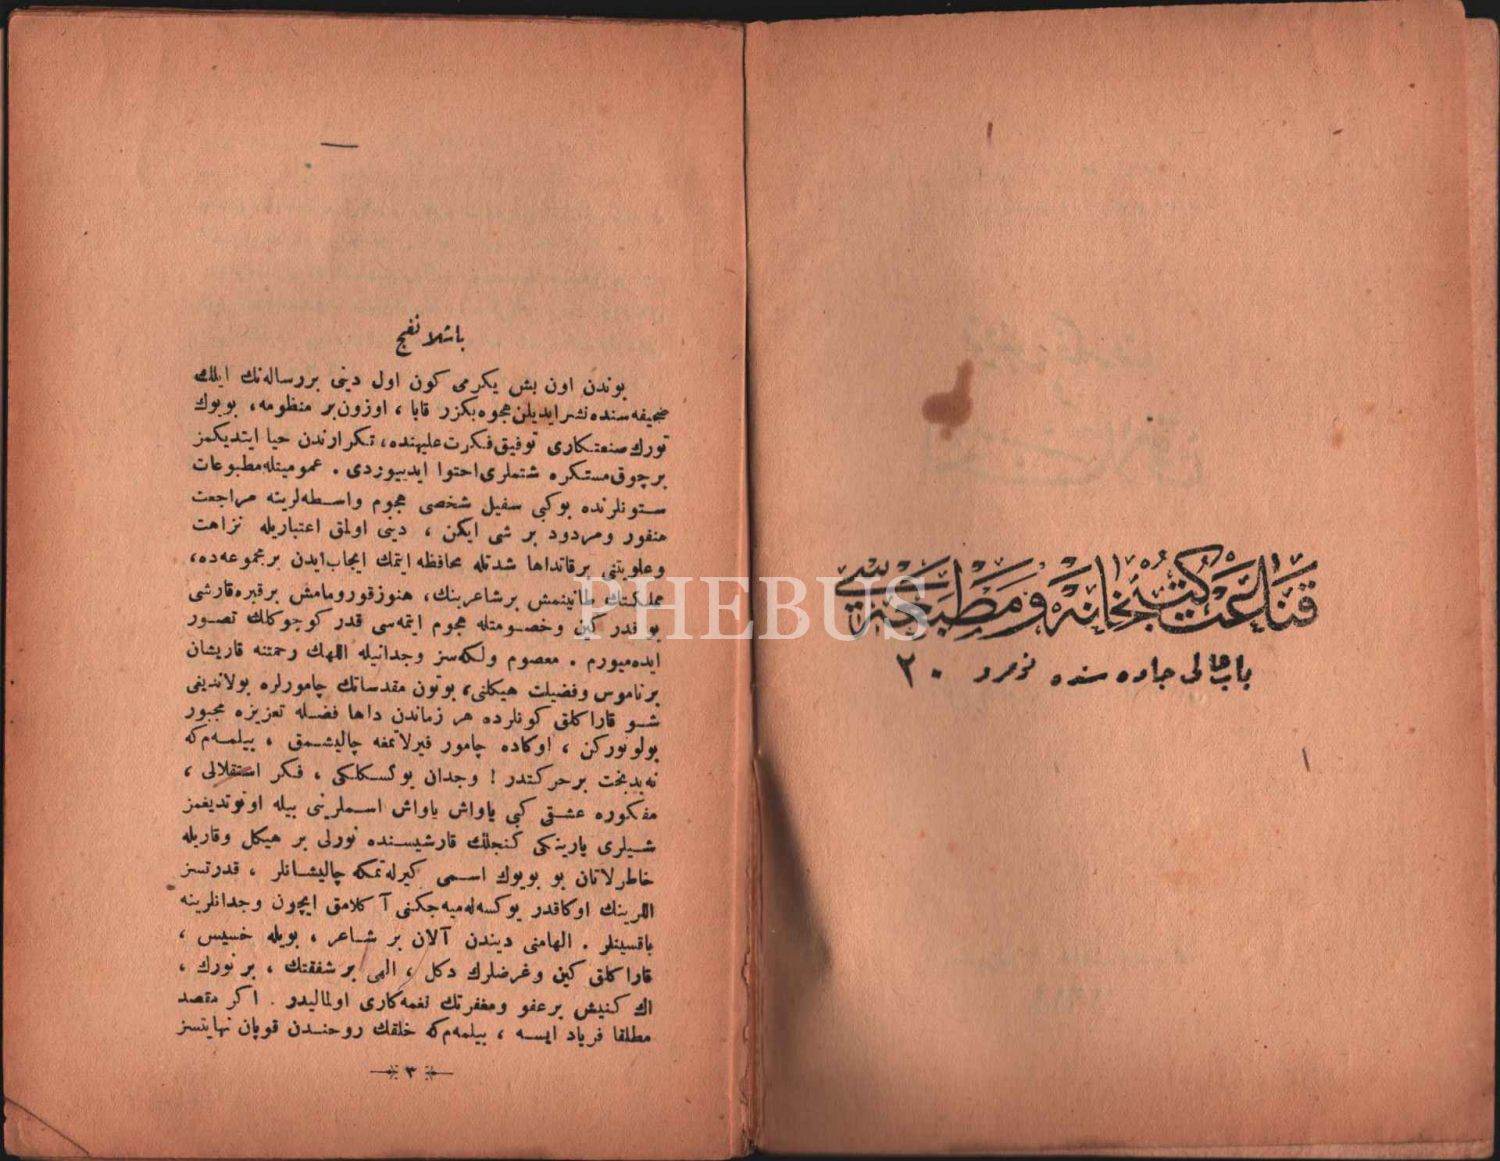 قناعت كتبخانه و مطبعه‌سی
باب عالی جاده سنده نومرو ٢٠
باشلانغیج
بوندن اون بش یكرمی كون اول دینی بر رساله‌نك ایلك
صحیفه‌سنده نشر ایدیلن هجوه بكزر قابا ، اوزون بر منظومه، بویوك
تورك صنعتكاری توفیق فكرت علیهنده، تكرارندن حیا ایتدیكمز
بر چوق مستكره شتملری احتوا ایدییوردی . عمومیتله مطبوعات
ستونلرنده بوكبی سفیل شخصی هجوم واسطه‌لرینه مراجعت
منفور ومردود بر شی ایكن ، دینی اولمق اعتباریله نزاهت
وعلویتنی بر قاتداها شدتله محافظه ایتمك ایجاب ایدن بر مجموعه‌ده،
مملكتك طانینمش بر شاعرینك، هنوز قورومامش بر قبره قارشی
بو قدر كین وخصومتله هجوم ایتمه‌سی قدر كوچوكلك تصور
ایده‌میورم . معصوم ولكه‌سز وجدانیله اللهك رحمتنه قاریشان
بر ناموس وفضیلت هیكلنی، بوتون مقدساتك چامورلره بولاندیغی
شو قاراكلق كونلرده هر زماندن داها فضله تعزیزه مجبور
بولونوركن ، اوكاده چامور فیرلاتمغه چالیشمق ، بیلمه‌م كه
نه بدبخت بر حركتدر ! وجدان یوكسكلكی ، فكر استقلالی ،
مفكوره عشقی كبی یاواش یاواش اسملرینی بیله اونوتدیغمز
شیلری یارینكی كنجلك قارشیسنده نورلی بر هیكل وقاریله
خاطرلاتان بو بویوك اسمی كیرله‌تمكه چالیشانلر ، قدرتسز
اللرینك اوكاقدر یوكسه‌له‌میه‌جكنی آكلامق ایچون وجدانلرینه
باقسینلر . الهامنی دیندن آلان بر شاعر ، بویله خسیس ،
قاراكلق كین وغرضلرك دكل ، الهی بر شفقتك ، بر نورك ،
اك كنیش بر عفو ومغفرتك نغمه‌كاری اولمالیدر . اكر مقصد
مطلقا فریاد ایسه ، بیلمه‌م كه خلقك روحندن قوپان نهایتسز
٣
PHEBUS